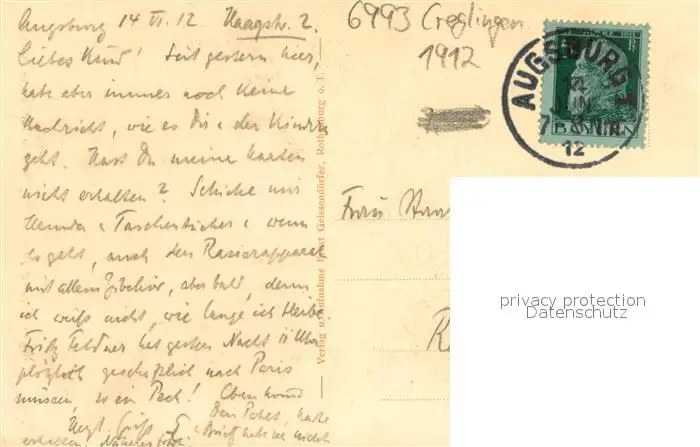 Augsburg 14 VI. 12 Haagstr. 2.
Liebes Kind! Seit gestern hier,
habe aber immer noch keine
Nachricht, wie es Dir u. den Kindern
geht. Hast Du meine Karten
nicht erhalten? Schicke mir
Hemden u. Taschentücher u. wenn
es geht, auch den Rasierapparat
mit allem Zubehör, aber bald, denn
ich weiß nicht, wie lange ich bleibe.
Fritz Feldner hat gestern Nacht 11 Uhr
plötzlich geschäftlich nach Paris
müssen, so ein Pech! Eben kommt
Herzl. Gruß
Dein Paket, Karte
Brief habe ich nicht
erhalten. Näheres
Verlag u. Aufnahme Ernst Geissendörfer, Rothenburg o. T.
6993 Creglingen
1912
AUGSBURG
14
JUN
12
BAYERN
Frau
privacy protection
Datenschutz